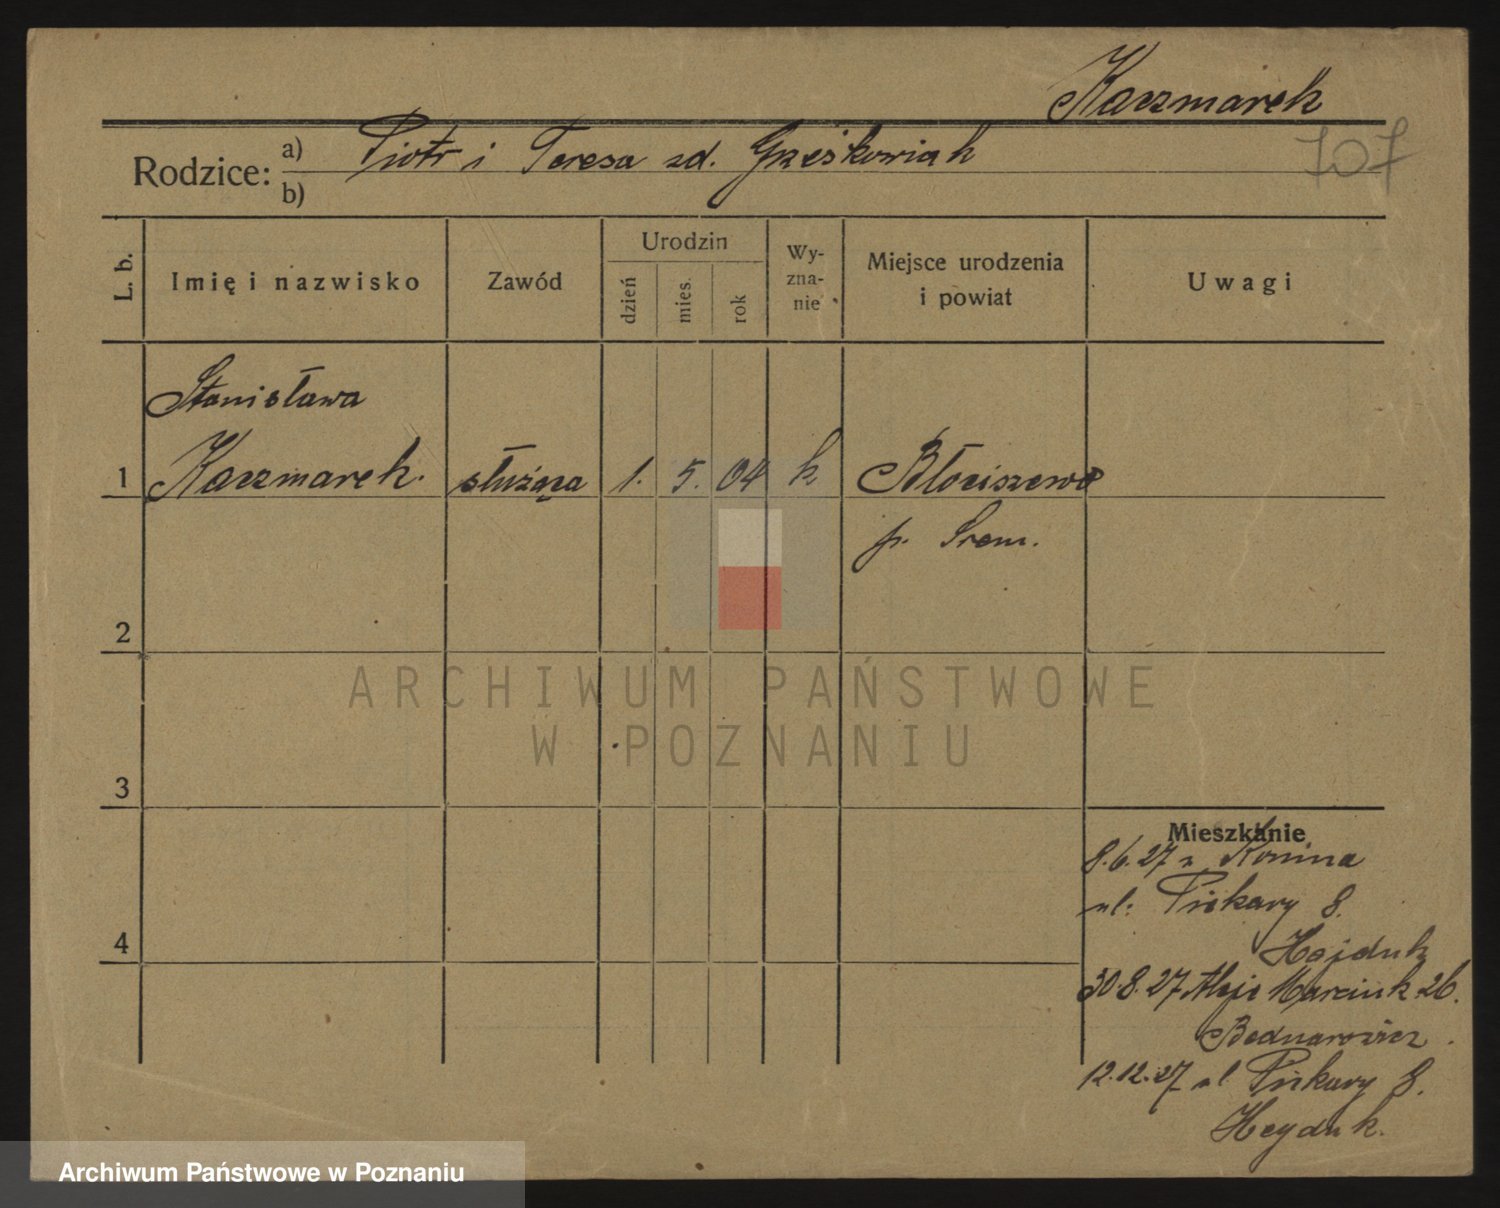 Kaczmarek
107
Rodzice: a) Piotr i Teresa zd. Grześkowiak
b)
L. b. Imię i nazwisko Zawód Urodzin dzień mies. rok Wy-zna-nie Miejsce urodzenia i powiat Uwagi
Stanisława
1 Kaczmarek. służąca 1. 5. 04 k Błociszewo
p. Śrem.
2
ARCHIWUM PAŃSTWOWE
W POZNANIU
3
Mieszkanie
8.6.27 z Konina
4 ul: Piekary 8.
Hajduk
30.8.27 Aleje Marcink 26.
Bednarowicz.
12.12.27 ul Piekary 8.
Heyduk.
Archiwum Państwowe w Poznaniu